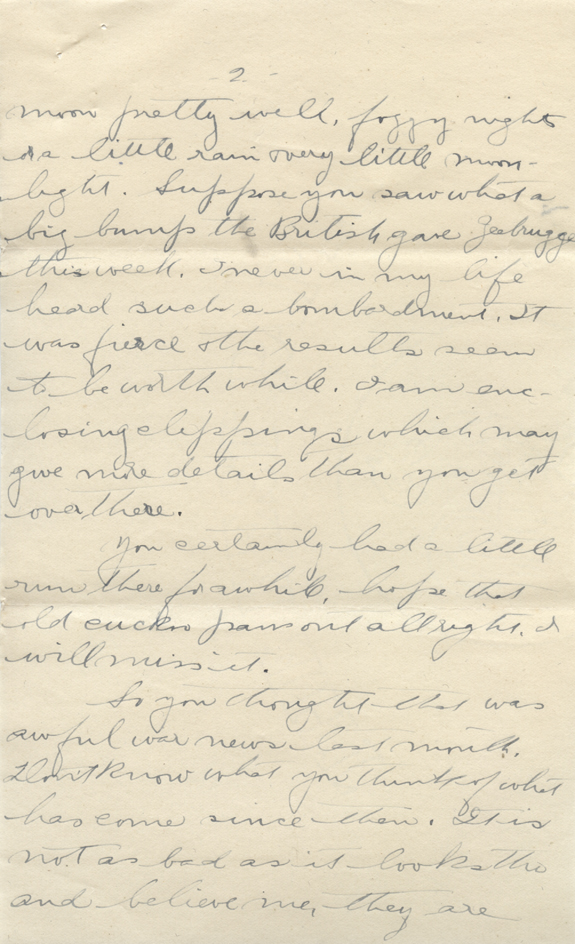 - 2 -
moon pretty well, foggy night
or a little rain & very little moon-
light. Suppose you saw what a
big bump the British gave Zeebrugge
this week. I never in my life
heard such a bombardment. It
was fierce & the results seem
to be worth while. I am enc-
losing clippings which may
give more details than you get
over there.
You certainly had a little
run there for awhile, hope that
old cuckoo pans out all right. I
will miss it.
So you thought that was
awful war news last month.
Don't know what you think of what
has come since then. It is
not as bad as it looks tho
and believe me, they are